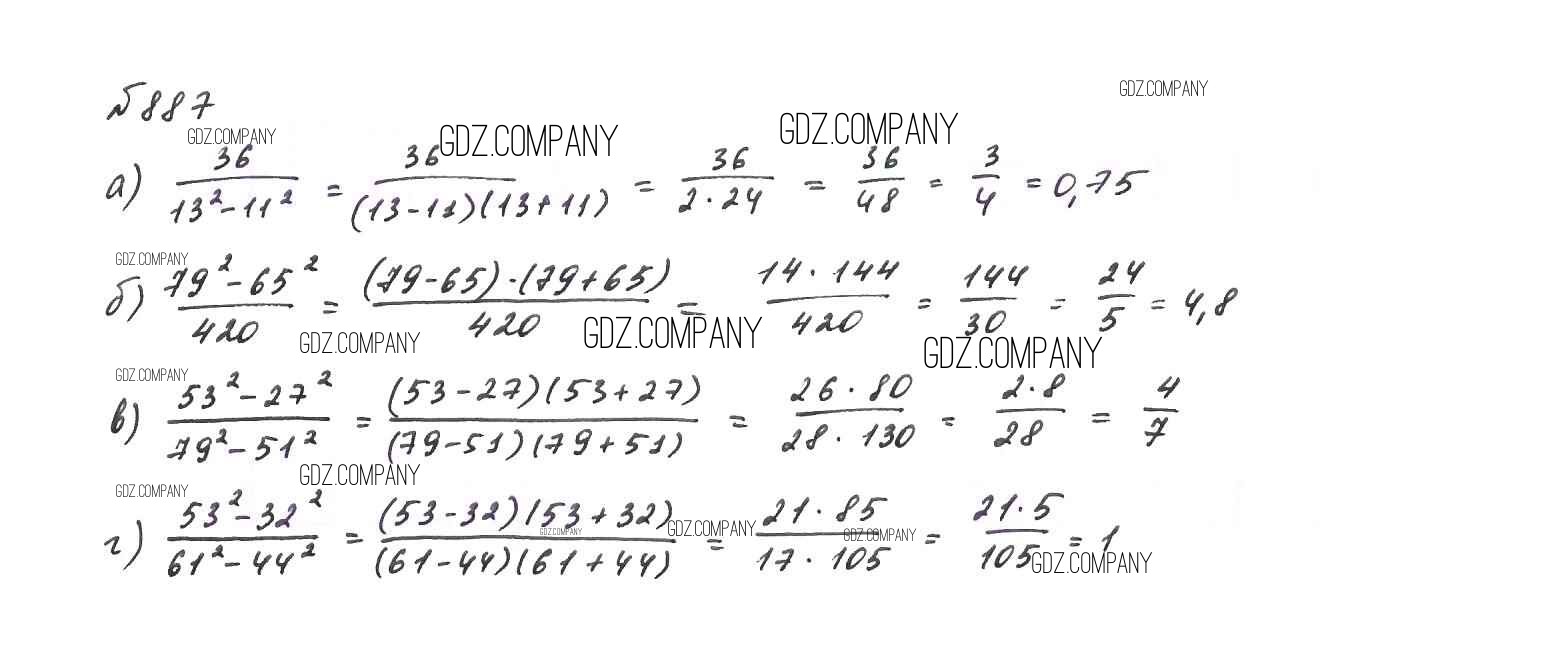 №887
GDZ.COMPANY
GDZ.COMPANY GDZ.COMPANY GDZ.COMPANY
а) 36/(13²-11²) = 36/((13-11)(13+11)) = 36/(2·24) = 36/48 = 3/4 = 0,75
GDZ.COMPANY
б) (79²-65²)/420 = ((79-65)·(79+65))/420 = (14·144)/420 = 144/30 = 24/5 = 4,8
GDZ.COMPANY GDZ.COMPANY GDZ.COMPANY
GDZ.COMPANY
в) (53²-27²)/(79²-51²) = ((53-27)(53+27))/((79-51)(79+51)) = (26·80)/(28·130) = (2·8)/28 = 4/7
GDZ.COMPANY
GDZ.COMPANY
г) (53²-32²)/(61²-44²) = ((53-32)(53+32))/((61-44)(61+44)) = (21·85)/(17·105) = (21·5)/105 = 1
GDZ.COMPANY GDZ.COMPANY GDZ.COMPANY GDZ.COMPANY